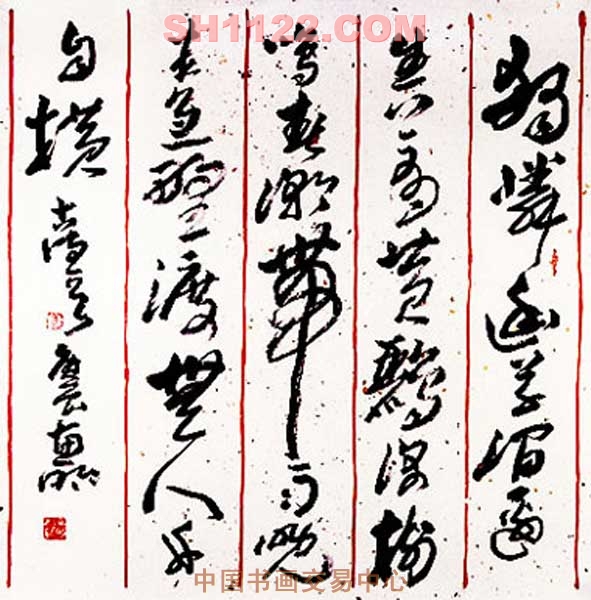 SH1122.COM
獨憐幽草澗邊
生上有黃鸝深樹
鳴春潮帶雨晚
來急野渡無人舟
自橫
中国书画交易中心